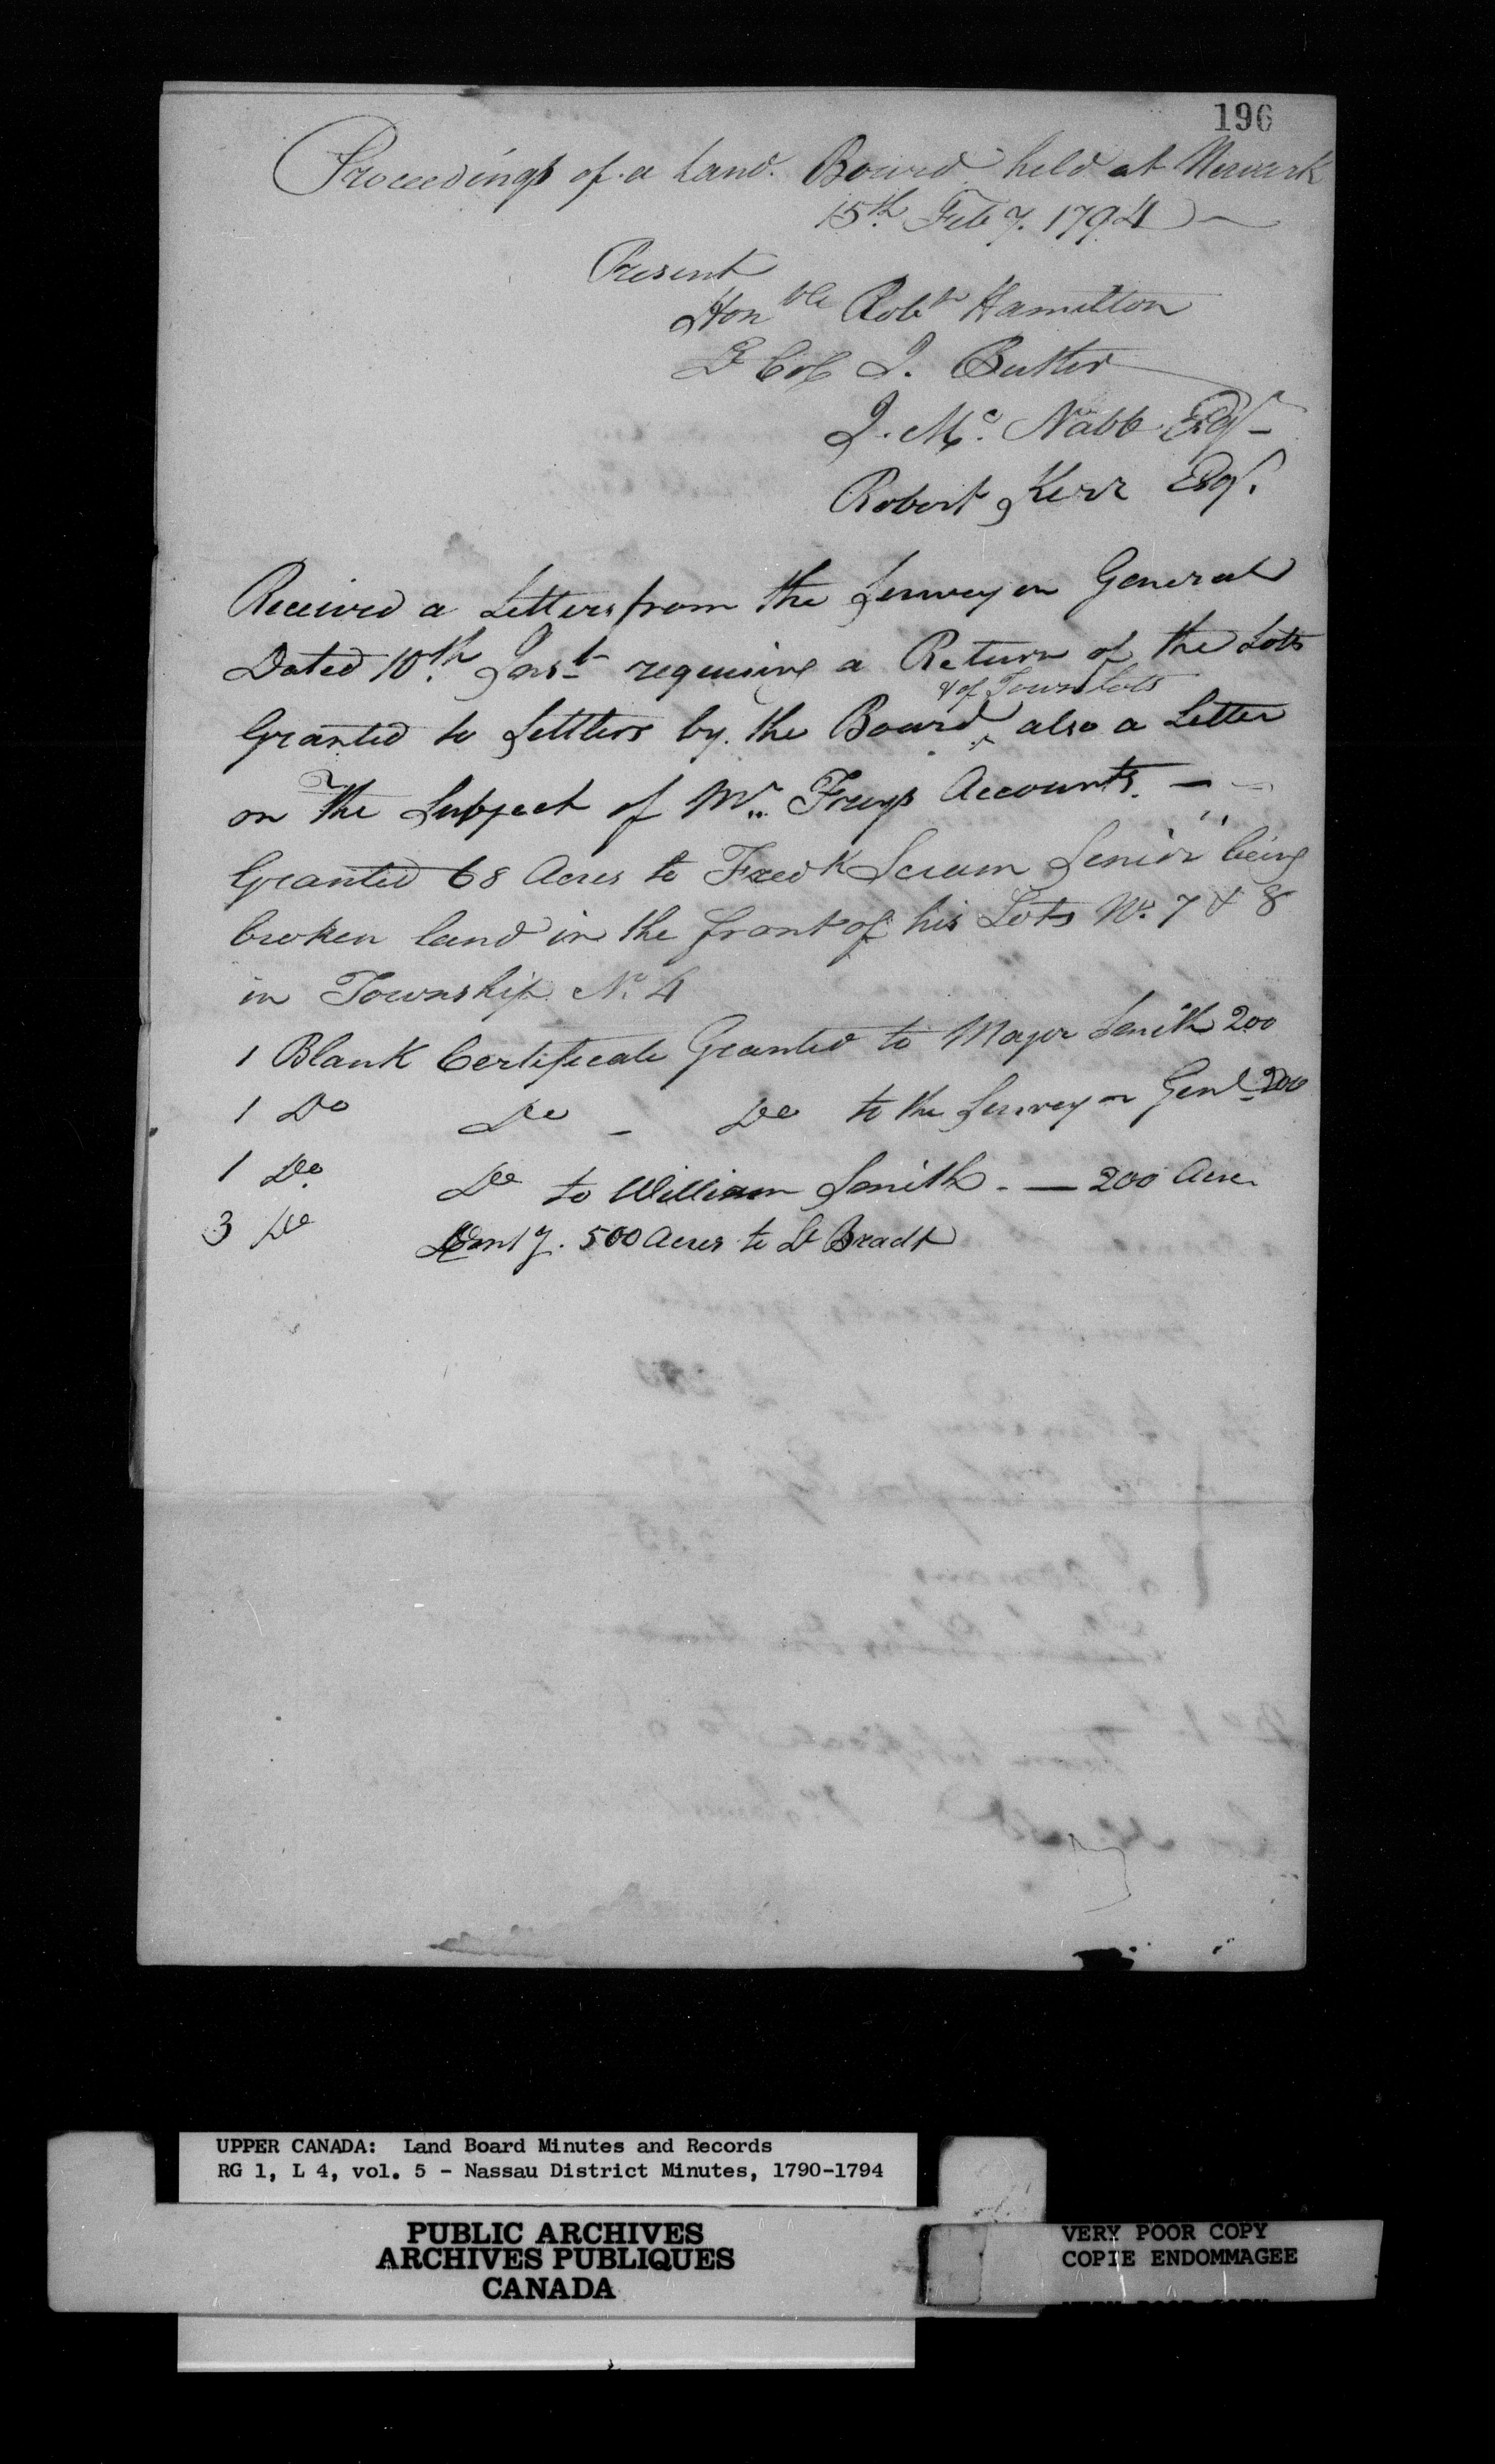 196
Proceedings of a Land Board held at Newark
15th Feby. 1794
Present
Honble Robt Hamilton
Lt Col J. Butler
J. Mc Nabb Esqr
Robert Kerr Esqr.
Received a Letters from the Surveyor General
Dated 10th Inst requiring a Return of the Lots
& of Town Lots
Granted to Settlers by the Board ^ also a Letter
on The Subject of Mr. Freys Accounts. —
Granted 68 Acres to Fredk Scram Senior being
broken land in the front of his Lots No. 7 & 8
in Township No. 4
1 Blank Certificate Granted to Major Smith 200
1 Do Do - Do to the Surveyor Genl 200
1 Do. Do to William Smith - — 200 Acres
3 Do 500 Acres to Lt Bradt
UPPER CANADA: Land Board Minutes and Records
RG 1, L 4, vol. 5 - Nassau District Minutes, 1790-1794
PUBLIC ARCHIVES
ARCHIVES PUBLIQUES
CANADA
VERY POOR COPY
COPIE ENDOMMAGEE